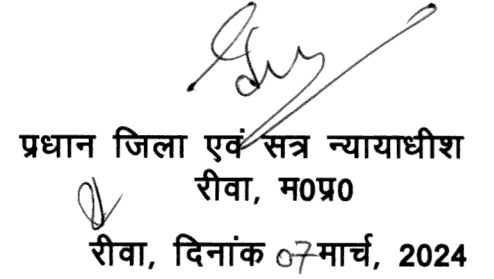 प्रधान जिला एवं सत्र न्यायाधीश
रीवा, म0प्र0
रीवा, दिनांक 07 मार्च, 2024